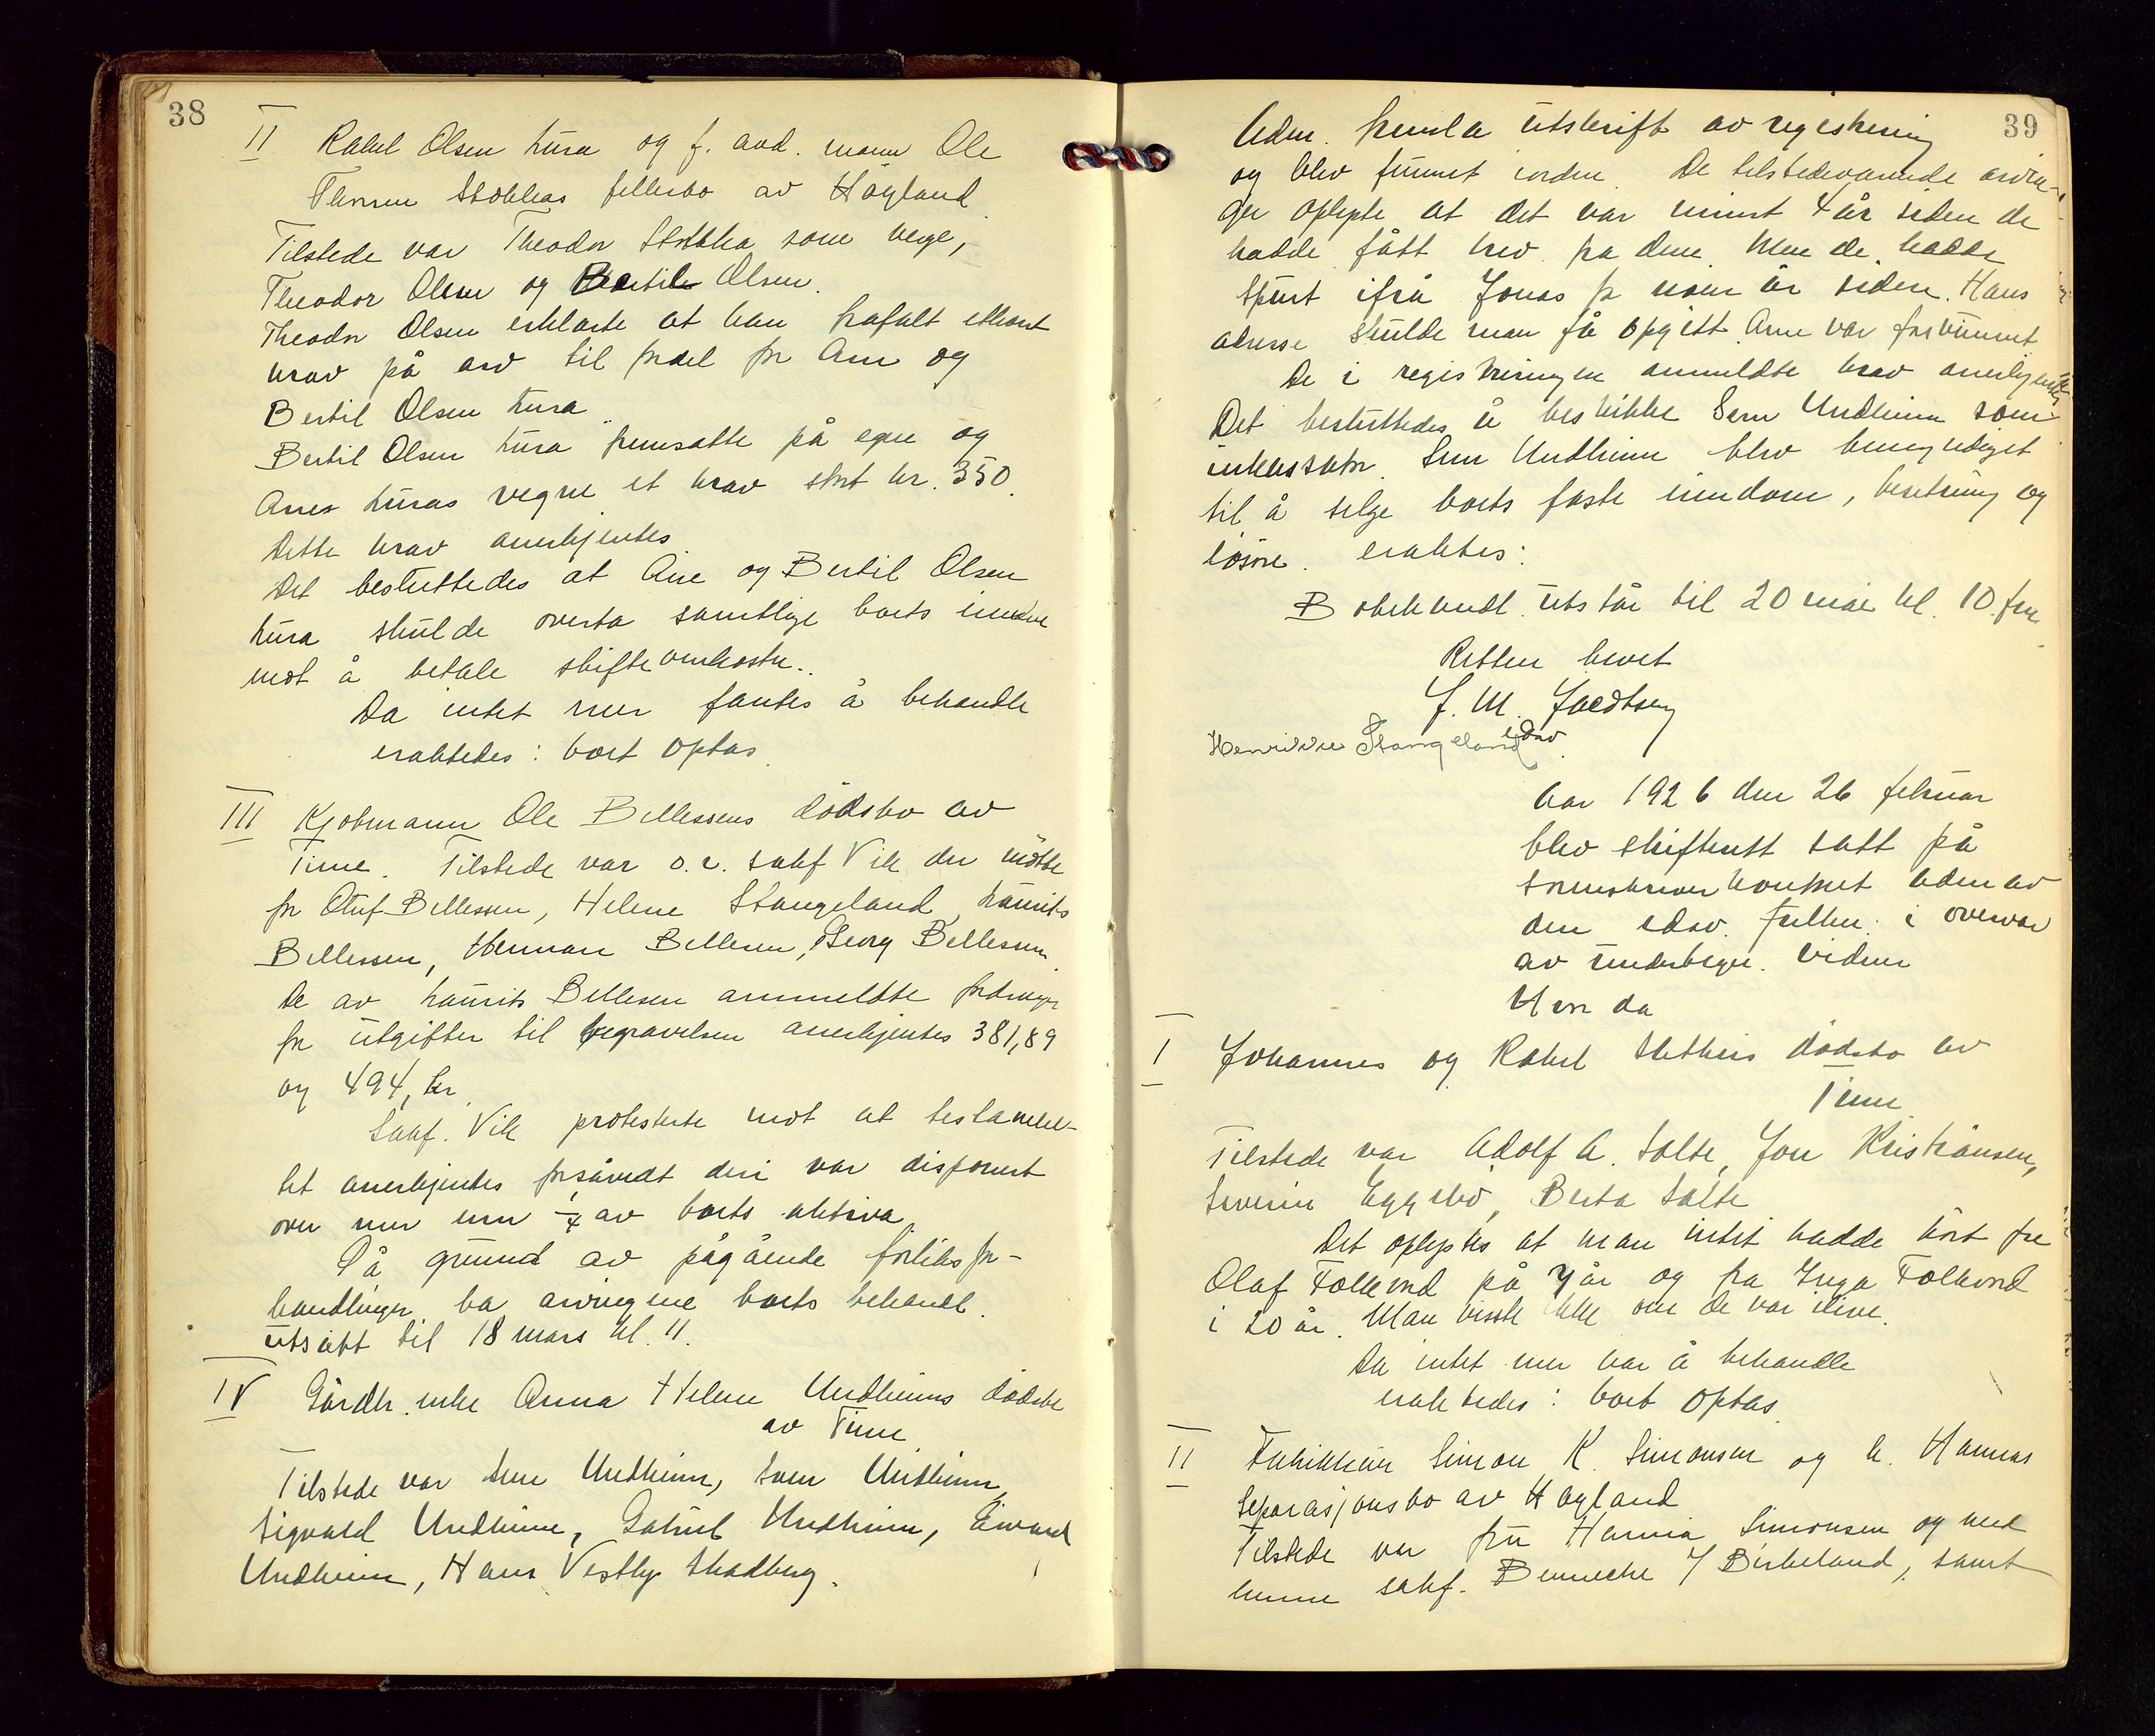 38
II Rakel Olsen Lura og f. avd. mann Ole
Thorsen Stokkas fellesbo av Høyland
Tilstede var Theodor Stokka som verge,
Theodor Olsen og Bertil Olsen.
Theodor Olsen erklærte at han frafalt ethvert
krav på arv til fordel for Arne og
Bertil Olsen Lura
Bertil Olsen Lura fremsatte på egne og
Arnes Luras vegne et krav stort kr. 350.
Dette krav anerkjentes
Det besluttedes at Arne og Bertil Olsen
Lura skulde overta samtlige boets
mot å betale skifteomkostn.
Da intet mer fantes å behandle
eraktedes: boet optas
III Kjøbmann Ole Bellessens dødsbo av
Time. Tilstede var o.r. sakf Vik der møtte
for Oluf Bellessen, Helene Stangeland, Laurits
Bellessen, Herman Bellesen, Georg Bellessen.
De av Laurits Bellesen anmeldte fordringer
for utgifter til begravelsen anerkjentes 381,89
og 494, kr.
Sakf. Vik protesterte mot at testamen-
tet anerkjentes forsåvidt deri var disponert
over mer enn ¼ av boets aktiva
På grund av pågående forliksfor-
handlinger ba arvingene boets behandl.
utsatt til 18 mars kl. 11.
IV Gårdbr. enke Anna Helene Undheims dødsbo
av Time
Tilstede var Undheim, Sven Undheim,
Sigvald Undheim, Gabriel Undheim, Eivind
Undheim, Hans Vestly Skadberg.
39
Adm. fremla utskrift av registrering
og blev funnet iorden. De tilstedeværende arvin-
ger oplyste at det var minst 4 år siden de
hadde fått brev fra dem. Men de hadde
spurt ifra Jonas for noen år siden. Hans
adresse skulde man få opgitt. Arne var forsvunnet
De i registreringen anmeldte krav anerkjentes
Det besluttedes å beskikke Sven Undheim som
inkassator. Sven Undheim blev bemyndiget
til å selge boets faste eiendom, besetning og
løsøre. eraktes:
Bobehandl. utstår til 20 mai kl. 10 fm.
Retten hevet
J. M.
Henrikke Stangeland edsv.
Aar 1926 den 26 februar
blev skifterett satt på
sorenskriverkontoret adm av
den edsv. fullm. i overvær
av undertegn. vidner
Hvor da
I Johannes og Rakel dødsbo av
Time
Tilstede var Adolf A. Salte, Jon Kristiansen,
Severin Eggebø, Berta Salte
Det oplystes at man intet hadde hørt fra
Olaf Folkvord på 7 år og fra Inga Folkvord
i 20 år. Man visste ikke om de var ilive.
Da intet mer var å behandle
eraktedes: boet optas
II Fabrikkeier Simon K. Simonsen og h. Hannas
Separasjonsbo av Høyland
Tilstede var fru Hanna Simonsen og med
henne sakf. Bennecke / Birkeland, samt